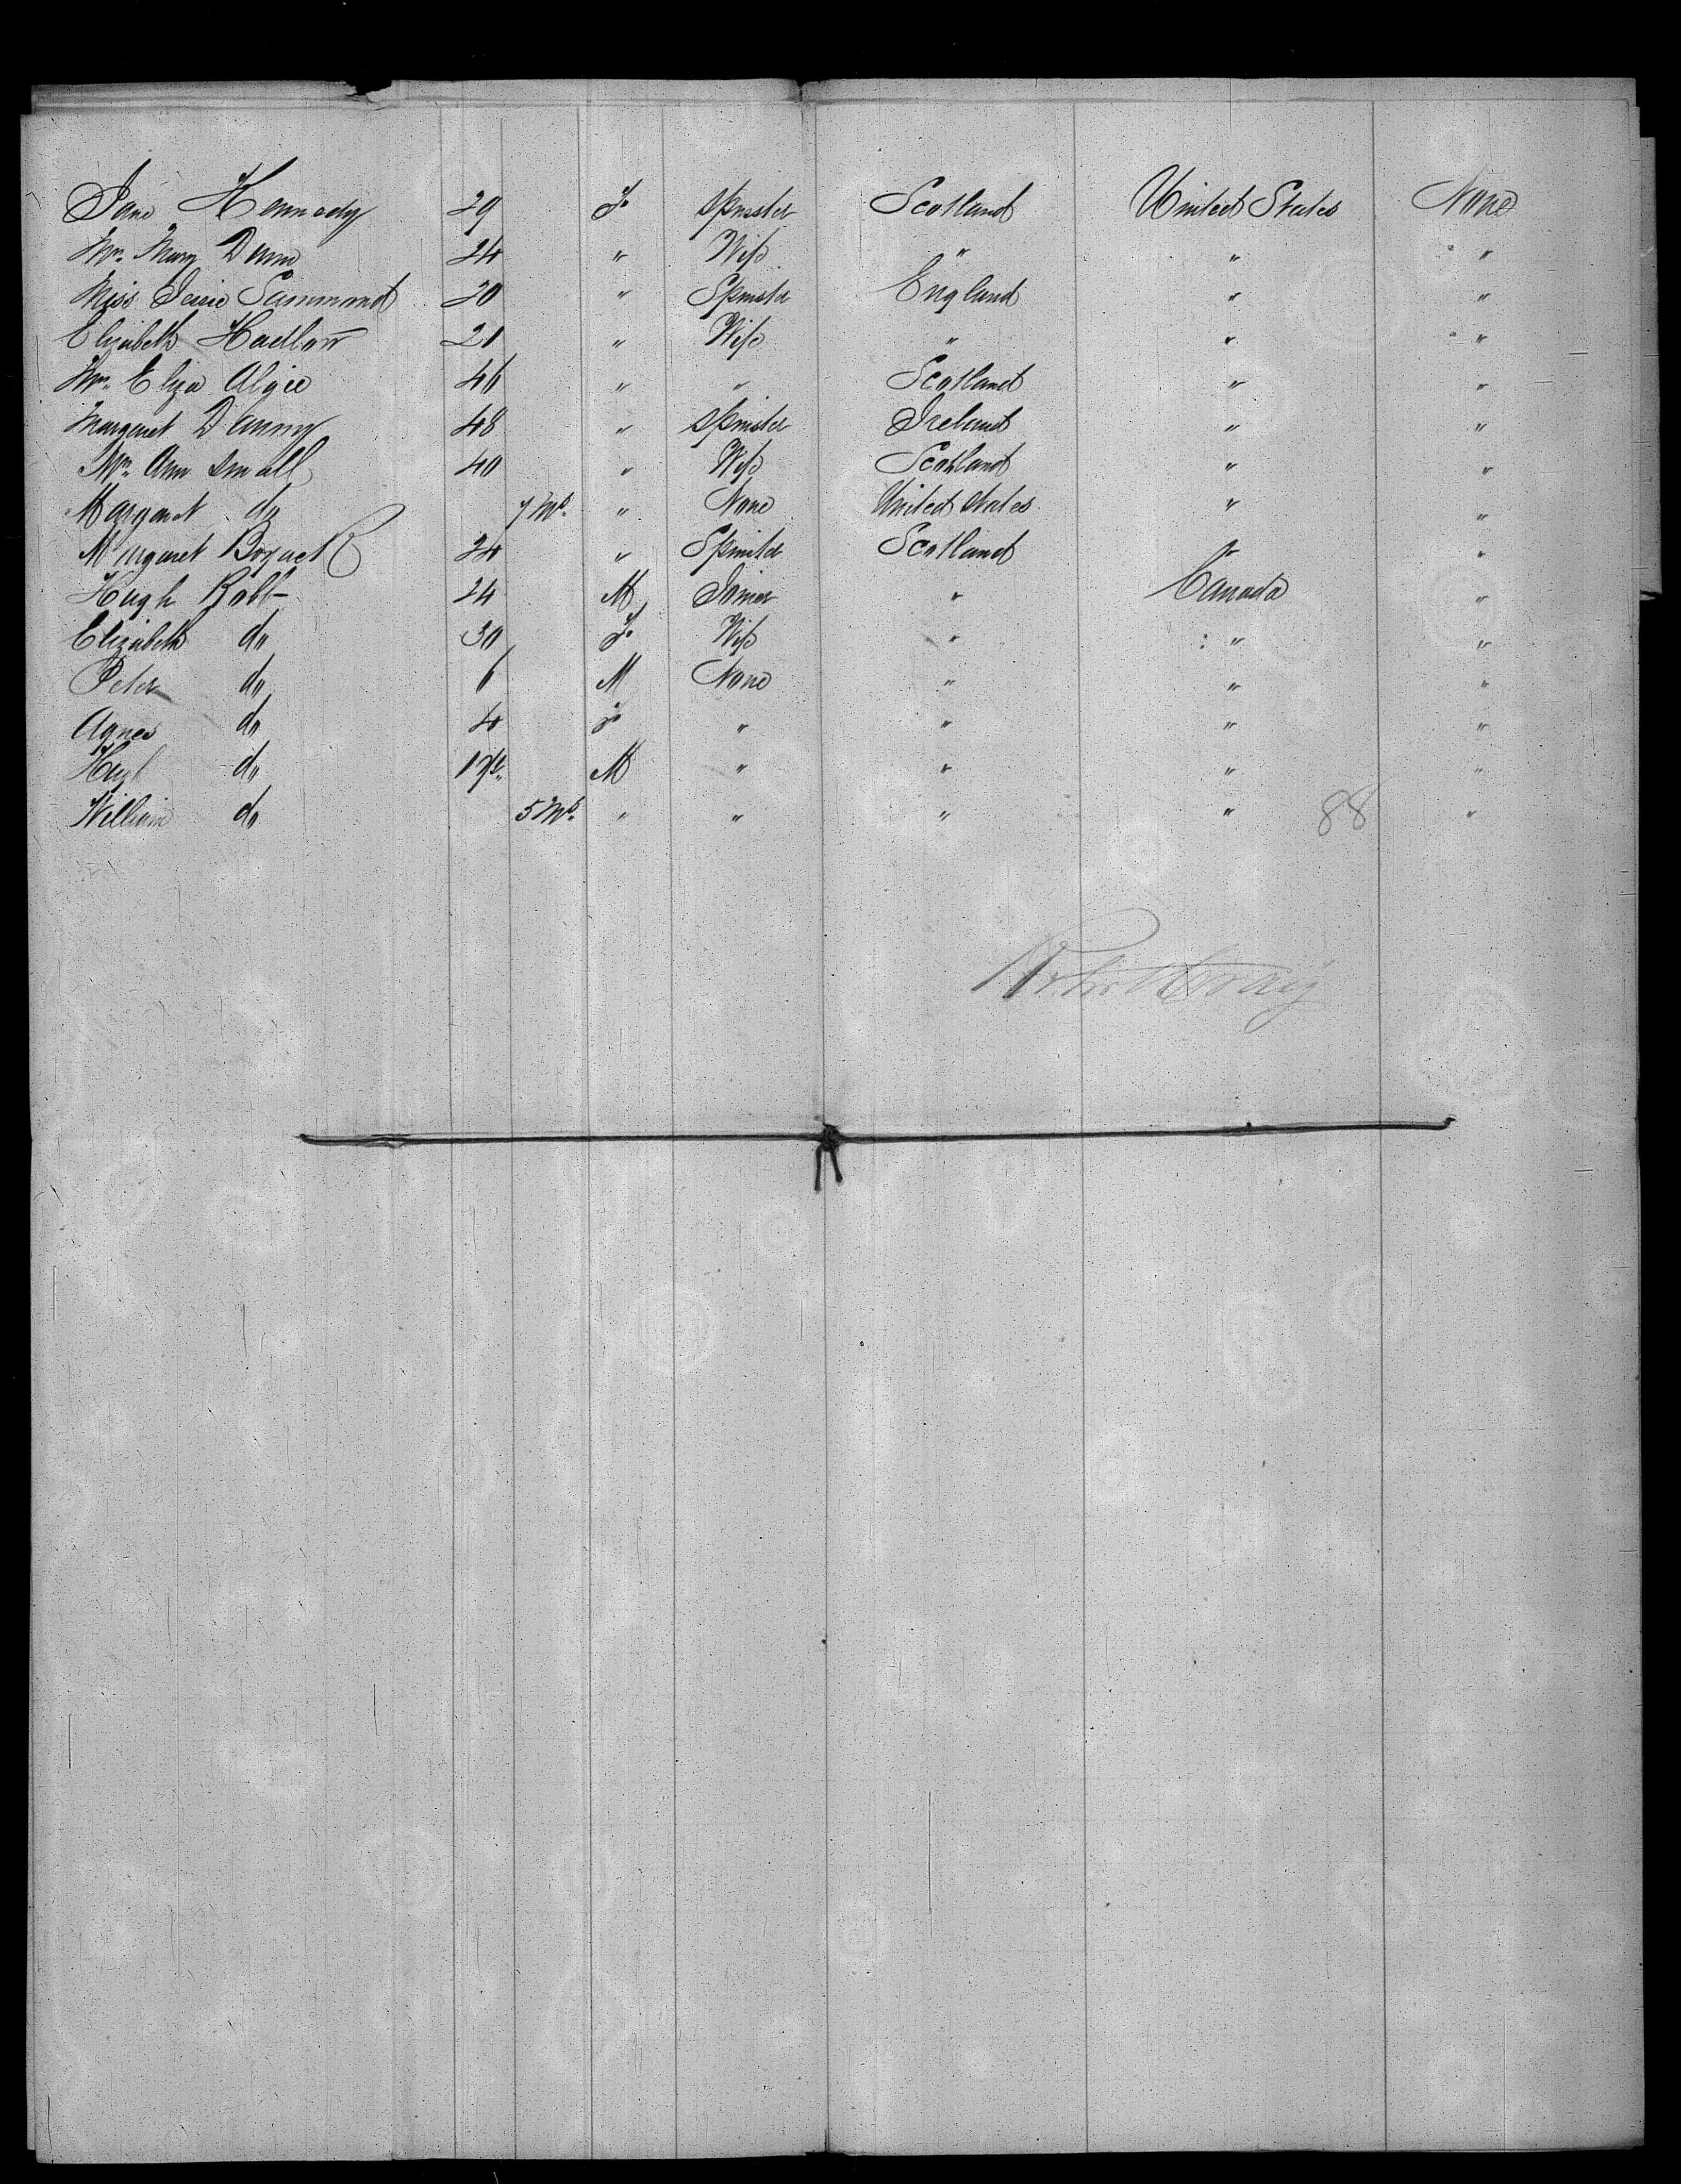 Jane Kennedy 29 F. Spinster Scotland United States None
Mrs. Mary Dunn 24 " Wife " " "
Miss Jessie Sammond 20 " Spinster England " "
Elizabeth Hadlow 21 " Wife " " "
Mrs. Eliza Algie 46 " " Scotland " "
Margaret Danny 48 " Spinster Ireland " "
Mrs. Ann Small 40 " Wife Scotland " "
Margaret do 7 Ms. " None United States " "
Margaret 24 " Spinster Scotland " "
Hugh Robb 24 M Joiner " Canada "
Elizabeth do 30 F. Wife " " "
Peter do 6 M None " " "
Agnes do 4 F. " " " "
Hugh do 1 M " " " "
William do 5 Ms. " " " " "
88
Craig